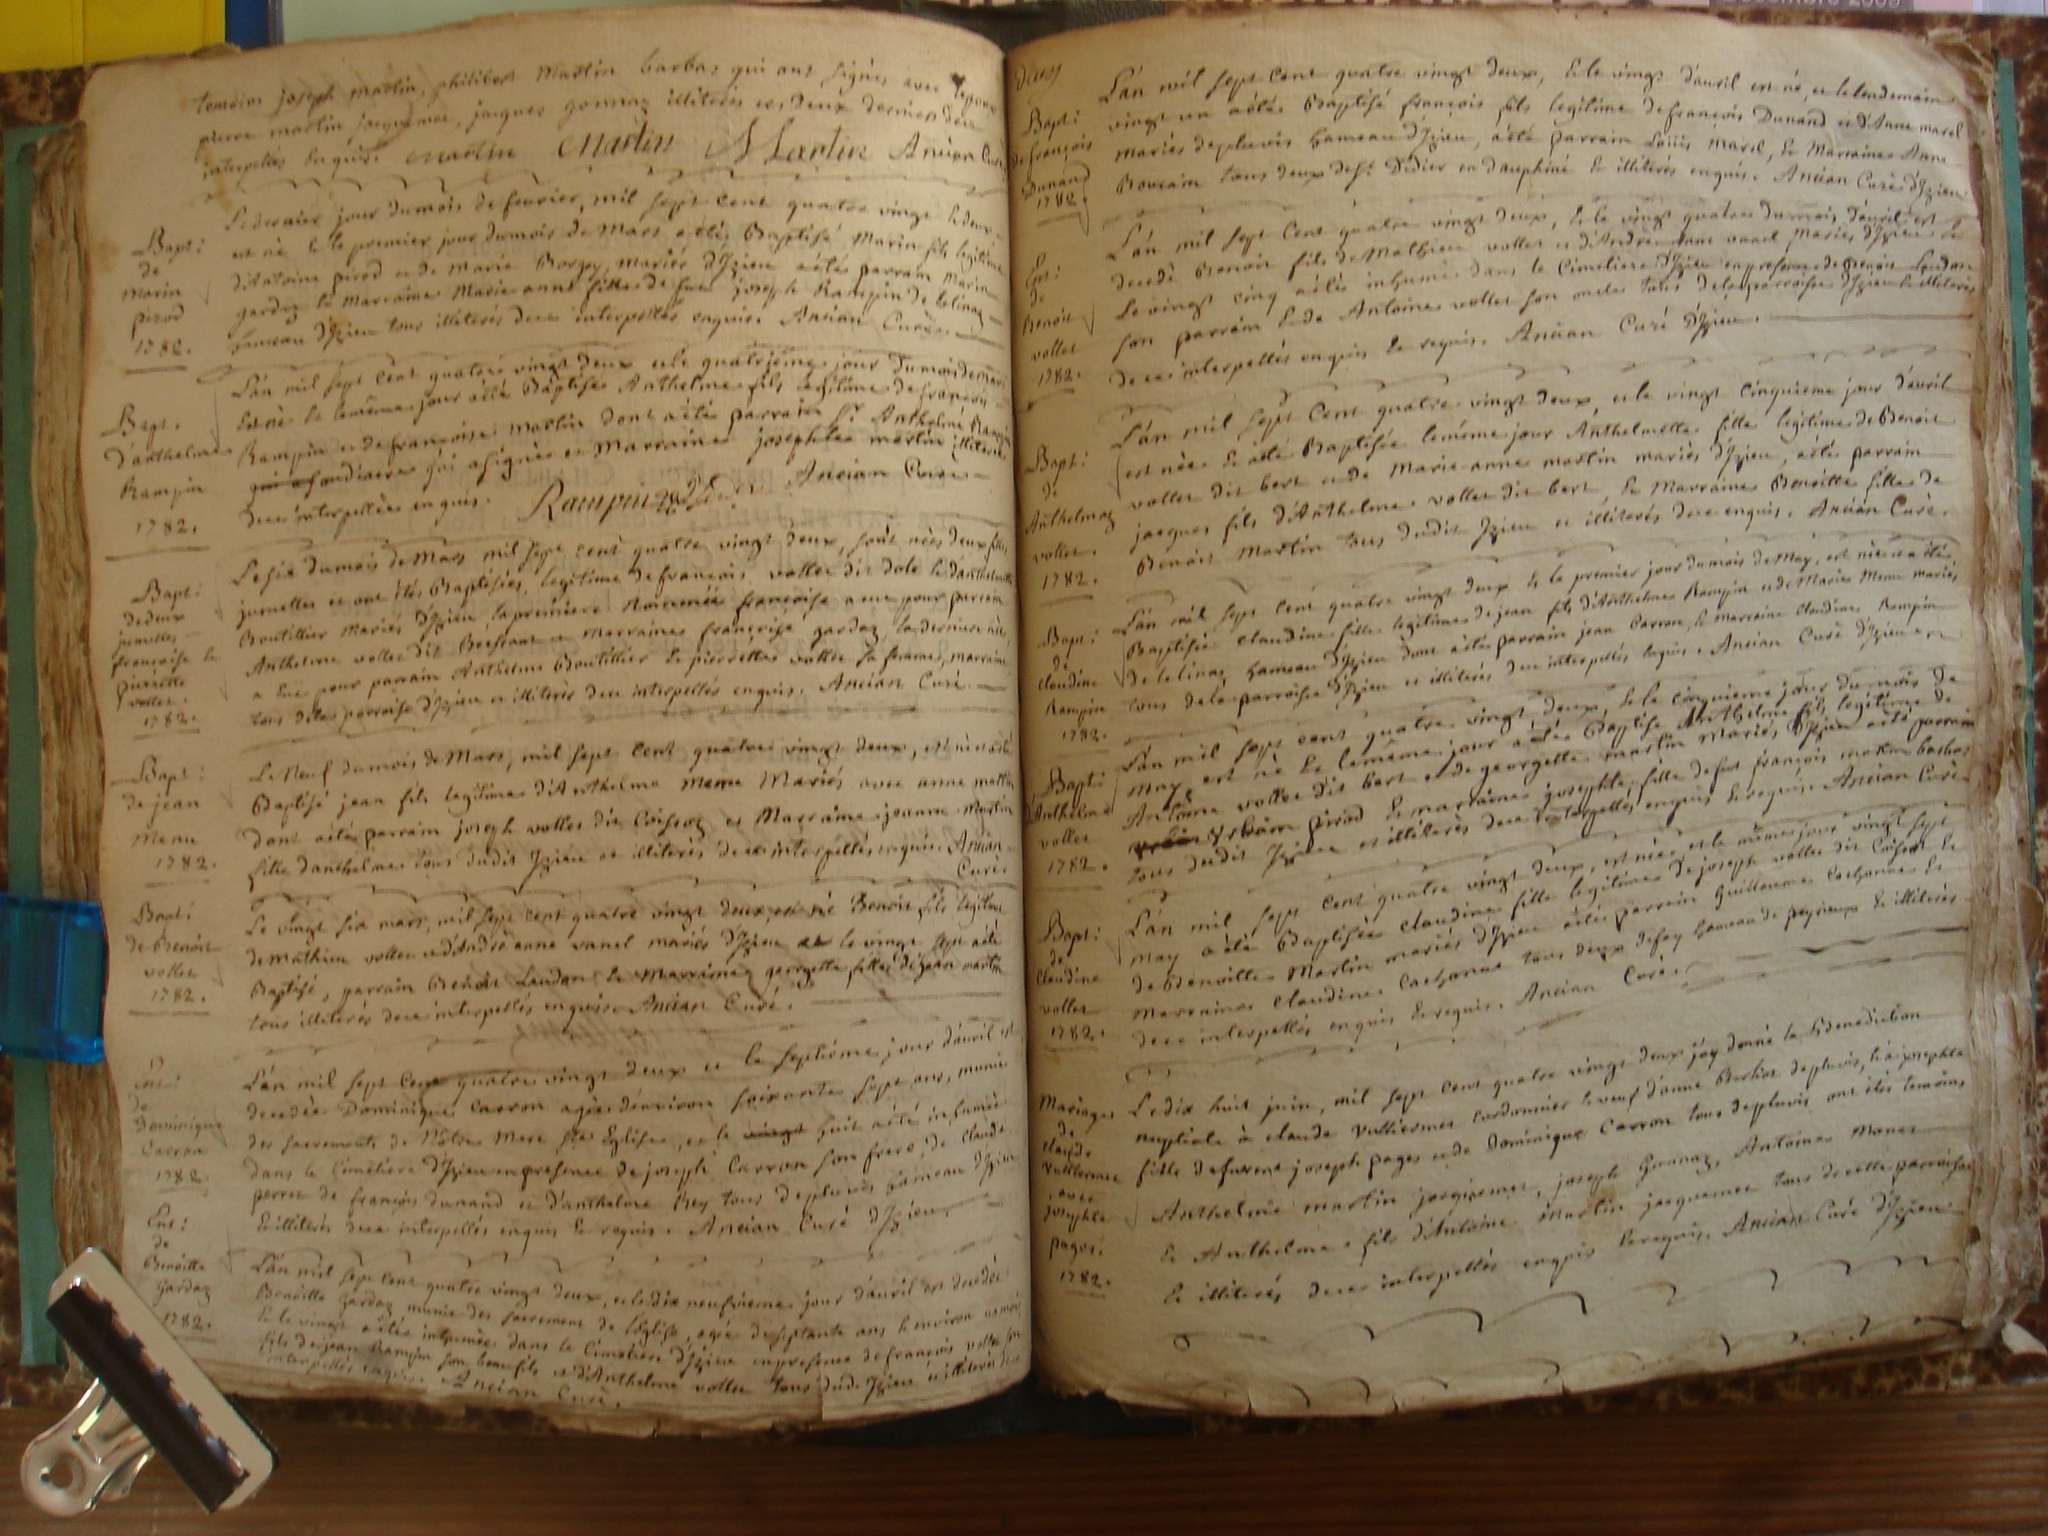 temoins joseph martin, philibert Martin barbaz qui ont signés avec
pierre martin jacquemer, jacques gonnaz illiterés ces deux derniers de ce
interpellés enquis. martin Martin Martin Ancian Curé
Bapt:
de
Marin
pirod
1782.
Le dernier jour du mois de fevrier, mil sept cent quatre vingt & deux,
est né & le premier jour du mois de Mars a été Baptisé Marin fils legitime
d'Antoine pirod et de Marie Borjey, mariés d'Izieu a été parrain Marin
gardaz & Marraine Marie anne fille de feu joseph Rampin de Lelinaz
hameau d'Izieu tous illiterés de ce interpellés enquis. Ancian Curé.
Bapt.
d'anthelme
Rampin
1782.
L'an mil sept cent quatre vingt deux et le quatrieme jour du mois de mars
est né & le même jour a été Baptisé Anthelme fils legitime de francois
Rampin et de francoise martin dont a été parrain Sr. Anthelme Rampin
qui a signé et Marraine josephte martin illiterée
de ce interpellée enquis. Rampin Ancian Curé
Bapt:
de deux
jumelles,
francoise &
pierrette
vollet.
1782.
Le six du mois de Mars mil sept cent quatre vingt deux, sont nées deux filles
jumelles et ont été Baptisées, legitime de francois vollet dit dole & d'anthelmette
Boutillier Mariés d'Izieu, la premiere Nommée francoise a eue pour parrain
Anthelme vollet dit Bressant et Marraine francoise gardaz, la derniere née,
a eue pour parrain Anthelme Boutillier & pierrette vollet sa femme, marraine
tous de la parroisse d'Izieu et illiterés de ce interpellés enquis. Ancian Curé.
Bapt:
de jean
Menu
1782.
Le Neuf du mois de Mars, mil sept cent quatre vingt deux, est né et a été
Baptisé jean fils legitime d'Anthelme Menu Mariés avec anne martin
dont a été parrain joseph vollet dit Coissoz et Marraine jeanne Martin
fille d'anthelme tous dudit Izieu et illiterés de ce interpellés enquis. Ancian
Curé
Bapt:
de Benoit
vollet
1782.
Le vingt six mars, mil sept cent quatre vingt deux, est né Benoit fils legitime
de mathieu vollet et d'André anne vanel mariés d'Izieu & le vingt sept a été
Baptisé, parrain Benoit Laudon & Marraine georgette fille de jean martin
tous illiterés de ce interpellés enquis. Ancian Curé.
Ent:
de
Dominique
Carron
1782.
L'an mil sept cent quatre vingt deux et le septieme jour d'avril est
decedée Dominique Carron agée d'environ soixante sept ans, munie
des sacrements de Notre Mere Ste Eglise, et le vingt huit a été inhumée
dans le Cimetiere d'Izieu en presence de joseph Carron son frere, de Claude
perret de francois dunand et d'anthelme Rey tous de pluvis hameau d'Izieu
& illiterés de ce interpellés enquis & requis. Ancian Curé d'Izieu.
Ent:
de
Benoitte
gardaz
1782.
L'an mil sept cent quatre vingt deux, et le dix neufvieme jour d'avril est decedée
Benoitte gardaz munie des sacrement de l'Eglise, agée de septante ans & environ
& le vingt a été inhumée dans le Cimetiere d'Izieu en presence de francois vollet
fils de jean Rampin son beau fils et d'Anthelme vollet tous dudit Izieu et illiterés de ce
interpellés enquis. Ancian Curé.
Bapt:
de francois
Dunand
1782.
L'an mil sept cent quatre vingt deux, & le vingt d'avril est né, et le lendemain
vingt un a été Baptisé francois fils legitime de francois Dunand et d'Anne marel
mariés de pluvis hameau d'Izieu, a été parrain Louis Marel, & Marraine Anne
tous deux de St. Didier en dauphiné & illiterés enquis. Ancian Curé d'Izieu.
Ent:
de
Benoit
vollet
1782.
L'an mil sept cent quatre vingt deux, & le vingt quatre du mois d'avril est
decedé Benoit fils de Mathieu vollet et d'Andrée anne vanel Mariés d'Izieu &
le vingt cinq a été inhumé dans le Cimetiere d'Izieu en presence de Benoit Laudon
son parrain & de Antoine vollet son oncle tous de la parroisse d'Izieu & illiterés
de ce interpellés enquis & requis. Ancian Curé d'Izieu.
Bapt:
de
Anthelmaz
vollet.
1782.
L'an mil sept cent quatre vingt deux, et le vingt cinquieme jour d'avril
est née & a été Baptisée le même jour Anthelmette fille legitime de Benoit
vollet dit bert et de Marie anne martin mariés d'Izieu, a été parrain
jacques fils d'Anthelme vollet dit bert, & Marraine Benoitte fille de
Benoit Martin tous dudit Izieu et illiterés de ce enquis. Ancian Curé.
Bapt:
de
Claudine
Rampin
1782.
L'an mil sept cent quatre vingt deux & le premier jour du mois de May, est née et a été
Baptisée Claudine fille legitime de jean fils d'Anthelme Rampin et de Marie Menu mariés
de Lelinaz hameau d'Izieu dont a été parrain jean Carron, & marraine Claudine Rampin
tous de la parroisse d'Izieu et illiterés de ce interpellés enquis. Ancian Curé d'Izieu
Bapt:
d'Anthelme
vollet
1782.
L'an mil sept cent quatre vingt deux, & le cinquieme jour du mois de
may est né & le même jour a été Baptisé Anthelme fils legitime de
Antoine vollet dit bert et de georgette martin Mariés d'Izieu a été parrain
Urbain pirod & marraine josephte fille de feu francois martin barbaz
tous dudit Izieu et illiterés de ce interpellés enquis & requis. Ancian Curé
Bapt:
de
Claudine
vollet
1782.
L'an mil sept cent quatre vingt deux, est née et le même jour vingt sept
may a été Baptisée Claudine fille legitime de joseph vollet dit Coissoz &
de Benoitte Martin mariés d'Izieu a été parrain Guillaume Cachonaz &
Marraine Claudine Cachonaz tous deux de fey hameau de peyrieux & illiterés
de ce interpellés enquis & requis. Ancian Curé.
Mariage
de
claude
Vulliermet
avec
josephte
pages.
1782.
Le dix huit juin, mil sept cent quatre vingt deux j'ay donné la Benediction
nuptiale à claude Vulliermet cordonnier & veuf d'anne Berlioz de pluvis, & à josephte
fille de furent joseph pages et de Dominique Carron tous de pluvis ont étés temoins
Anthelme martin jacquemet, joseph Gonnaz, Antoine Monet
& Anthelme fils d'Antoine Martin jacquemet tous de cette parroisse
& illiterés de ce interpellés enquis & requis. Ancian Curé d'Izieu